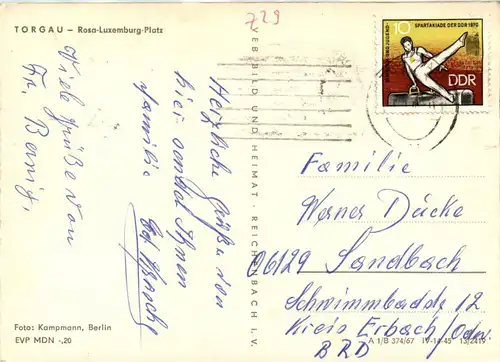 TORGAU — Rosa-Luxemburg-Platz
729
Viele Grüße von
Fr. Bernig.
Herzliche Grüße von
hier sendet Ihnen
Familie
VEB BILD UND HEIMAT · REICHENBACH I. V.
10
SPARTAKIADE DER DDR 1970
DDR
Familie
Werner Dücke
06129 Sandbach
Schwimmbadstr 12
Kreis Erbach/Odw
BRD
Foto: Kampmann, Berlin
EVP MDN -,20
A 1/B 374/67 IV-14-45 13/2419